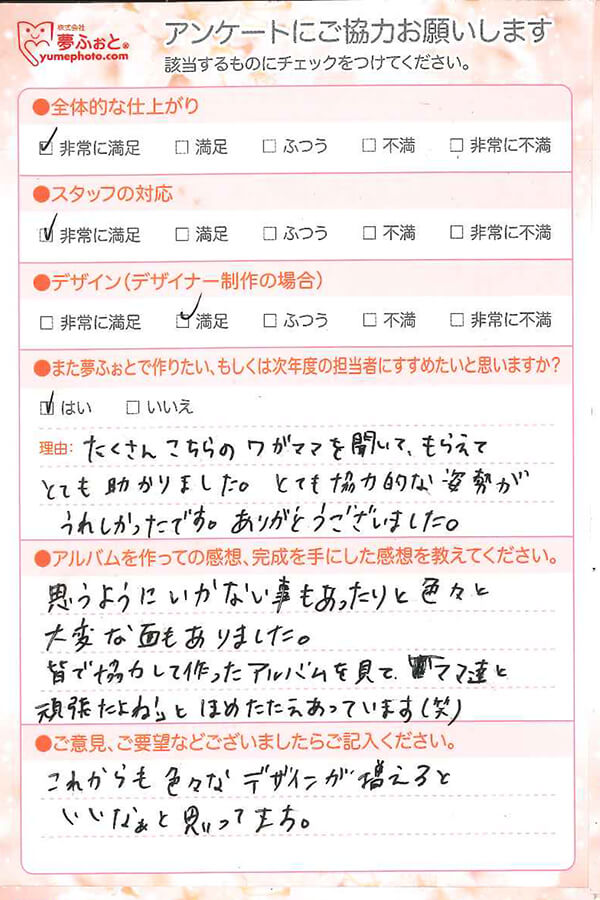 株式会社
夢ふぉと®
yumephoto.com
アンケートにご協力お願いします
該当するものにチェックをつけてください。
●全体的な仕上がり
☑ 非常に満足 □ 満足 □ ふつう □ 不満 □ 非常に不満
●スタッフの対応
☑ 非常に満足 □ 満足 □ ふつう □ 不満 □ 非常に不満
●デザイン(デザイナー制作の場合)
□ 非常に満足 ☑ 満足 □ ふつう □ 不満 □ 非常に不満
●また夢ふぉとで作りたい、もしくは次年度の担当者にすすめたいと思いますか?
☑ はい □ いいえ
理由: たくさん こちらの ワガママを聞いて、もらえて
とても 助かりました。 とても 協力的な 姿勢が
うれしかったです。ありがとうございました。
●アルバムを作っての感想、完成を手にした感想を教えてください。
思うようにいかない事もあったりと 色々と
大変な面もありました。
皆で協力して作ったアルバムを見て、ママ達と
頑張たよね!」と ほめたたえあっています(笑)
●ご意見、ご要望などございましたらご記入ください。
これからも 色々な デザインが 増えると
いいなぁと 思ってます。